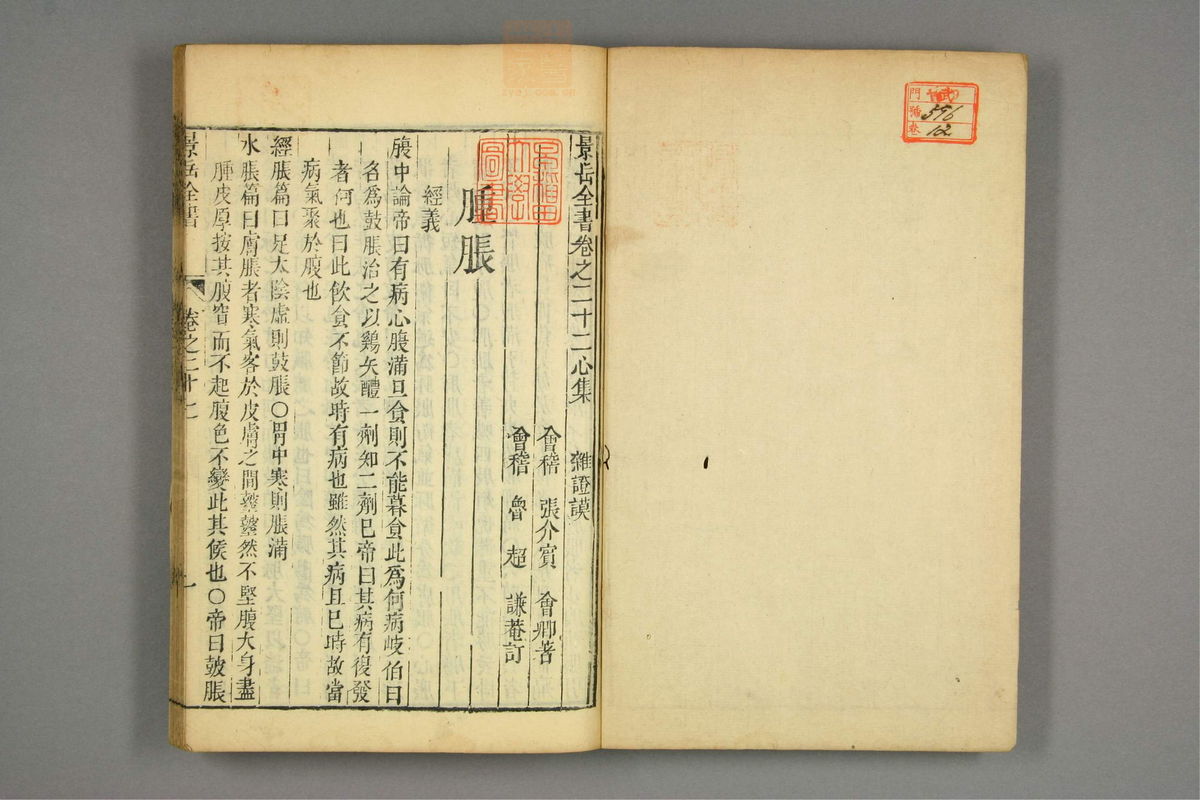 景岳全書卷之二十二心集 雜證謨
會稽 張介賓 會卿著
會稽 魯 超 謙菴訂
腫脹
經義
腹中論帝曰有病心腹滿旦食則不能暮食此為何病岐伯曰
名為鼓脹治之以鷄矢醴一劑知二劑已帝曰其病有復發
者何也曰此飲食不節故時有病也雖然其病且已時故當
病氣聚於腹也
經脹篇曰足太陰虛則鼓脹○胃中寒則脹滿
水脹篇曰膚脹者寒氣客於皮膚之間𪔣𪔣然不堅腹大身盡
腫皮厚按其腹窅而不起腹色不變此其候也○帝曰鼓脹
景岳全書 卷之二十二 一
早稻田大學圖書
門
號 596
卷 12